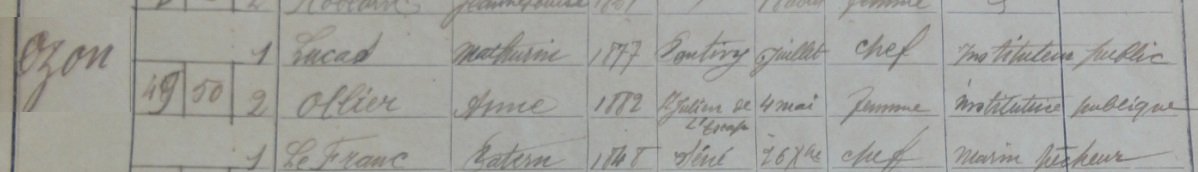 Ozon
1 Lucas Mathurin 1877 Pontivy juillet chef instituteur public
49 50 2 Ollier Anne 1882 St Julien de L'Escap 4 mai femme institutrice publique
1 Le Franc Patern 1848 Séné 26 Xbre chef marin pêcheur